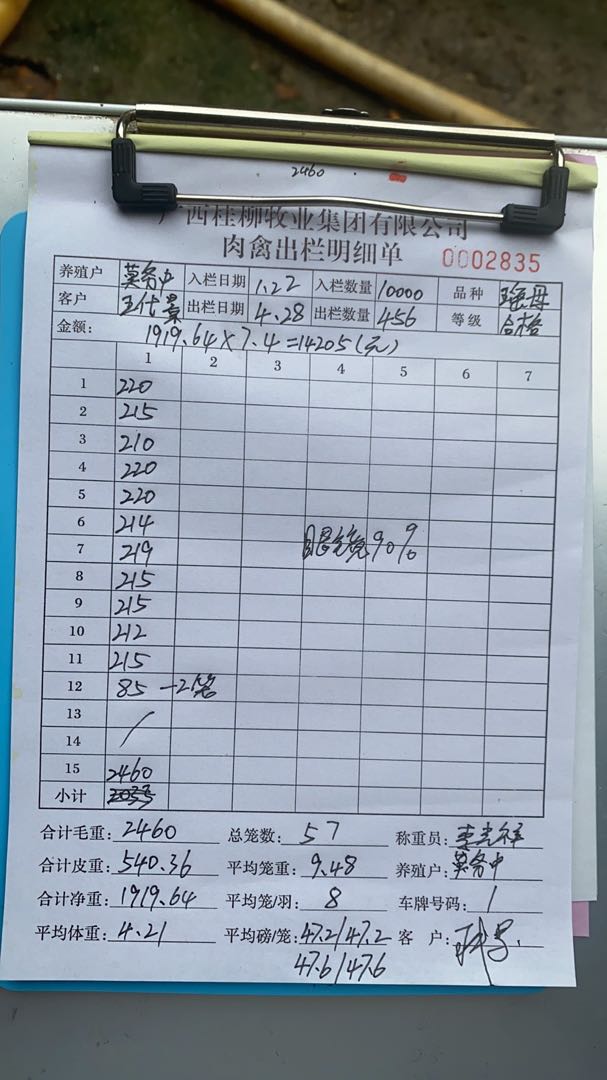 2460
广西桂柳牧业集团有限公司
肉禽出栏明细单 0002835
养殖户 莫务中 入栏日期 1.22 入栏数量 10000 品种 瑶母
客户 王代景 出栏日期 4.28 出栏数量 456 等级 合格
金额: 1919.64×7.4=14205(元)
1 2 3 4 5 6 7
1 220
2 215
3 210
4 220
5 220
6 214
7 219 眼镜90%
8 215
9 215
10 212
11 215
12 85 —2笼
13
14
15 2460
小计
合计毛重: 2460 总笼数: 57 称重员:
合计皮重: 540.36 平均笼重: 9.48 养殖户: 莫务中
合计净重: 1919.64 平均笼/羽: 8 车牌号码: 1
平均体重: 4.21 平均磅/笼: 47.2/47.2 客 户:
47.6/47.6